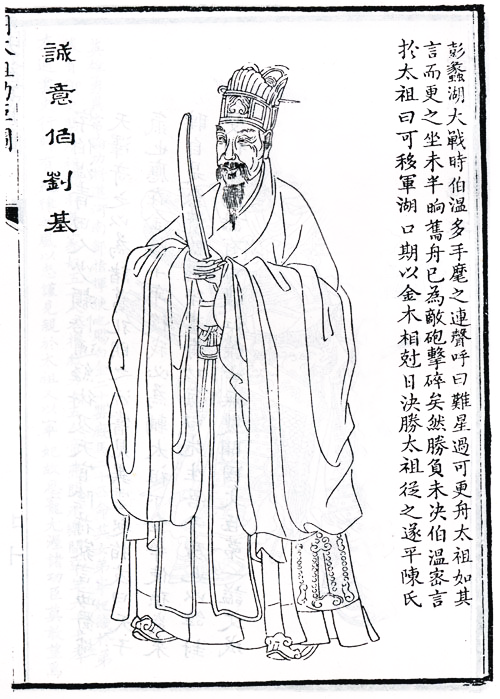 彭蠡湖大戰時伯溫多手麾之連聲呼曰難星過可更舟太祖如其
言而更之坐未半晌舊舟已為敵砲擊碎矣然勝負未決伯溫密言
扵太祖曰可移軍湖口期以金木相尅日決勝太祖從之遂平陳氏
誠意伯劉基